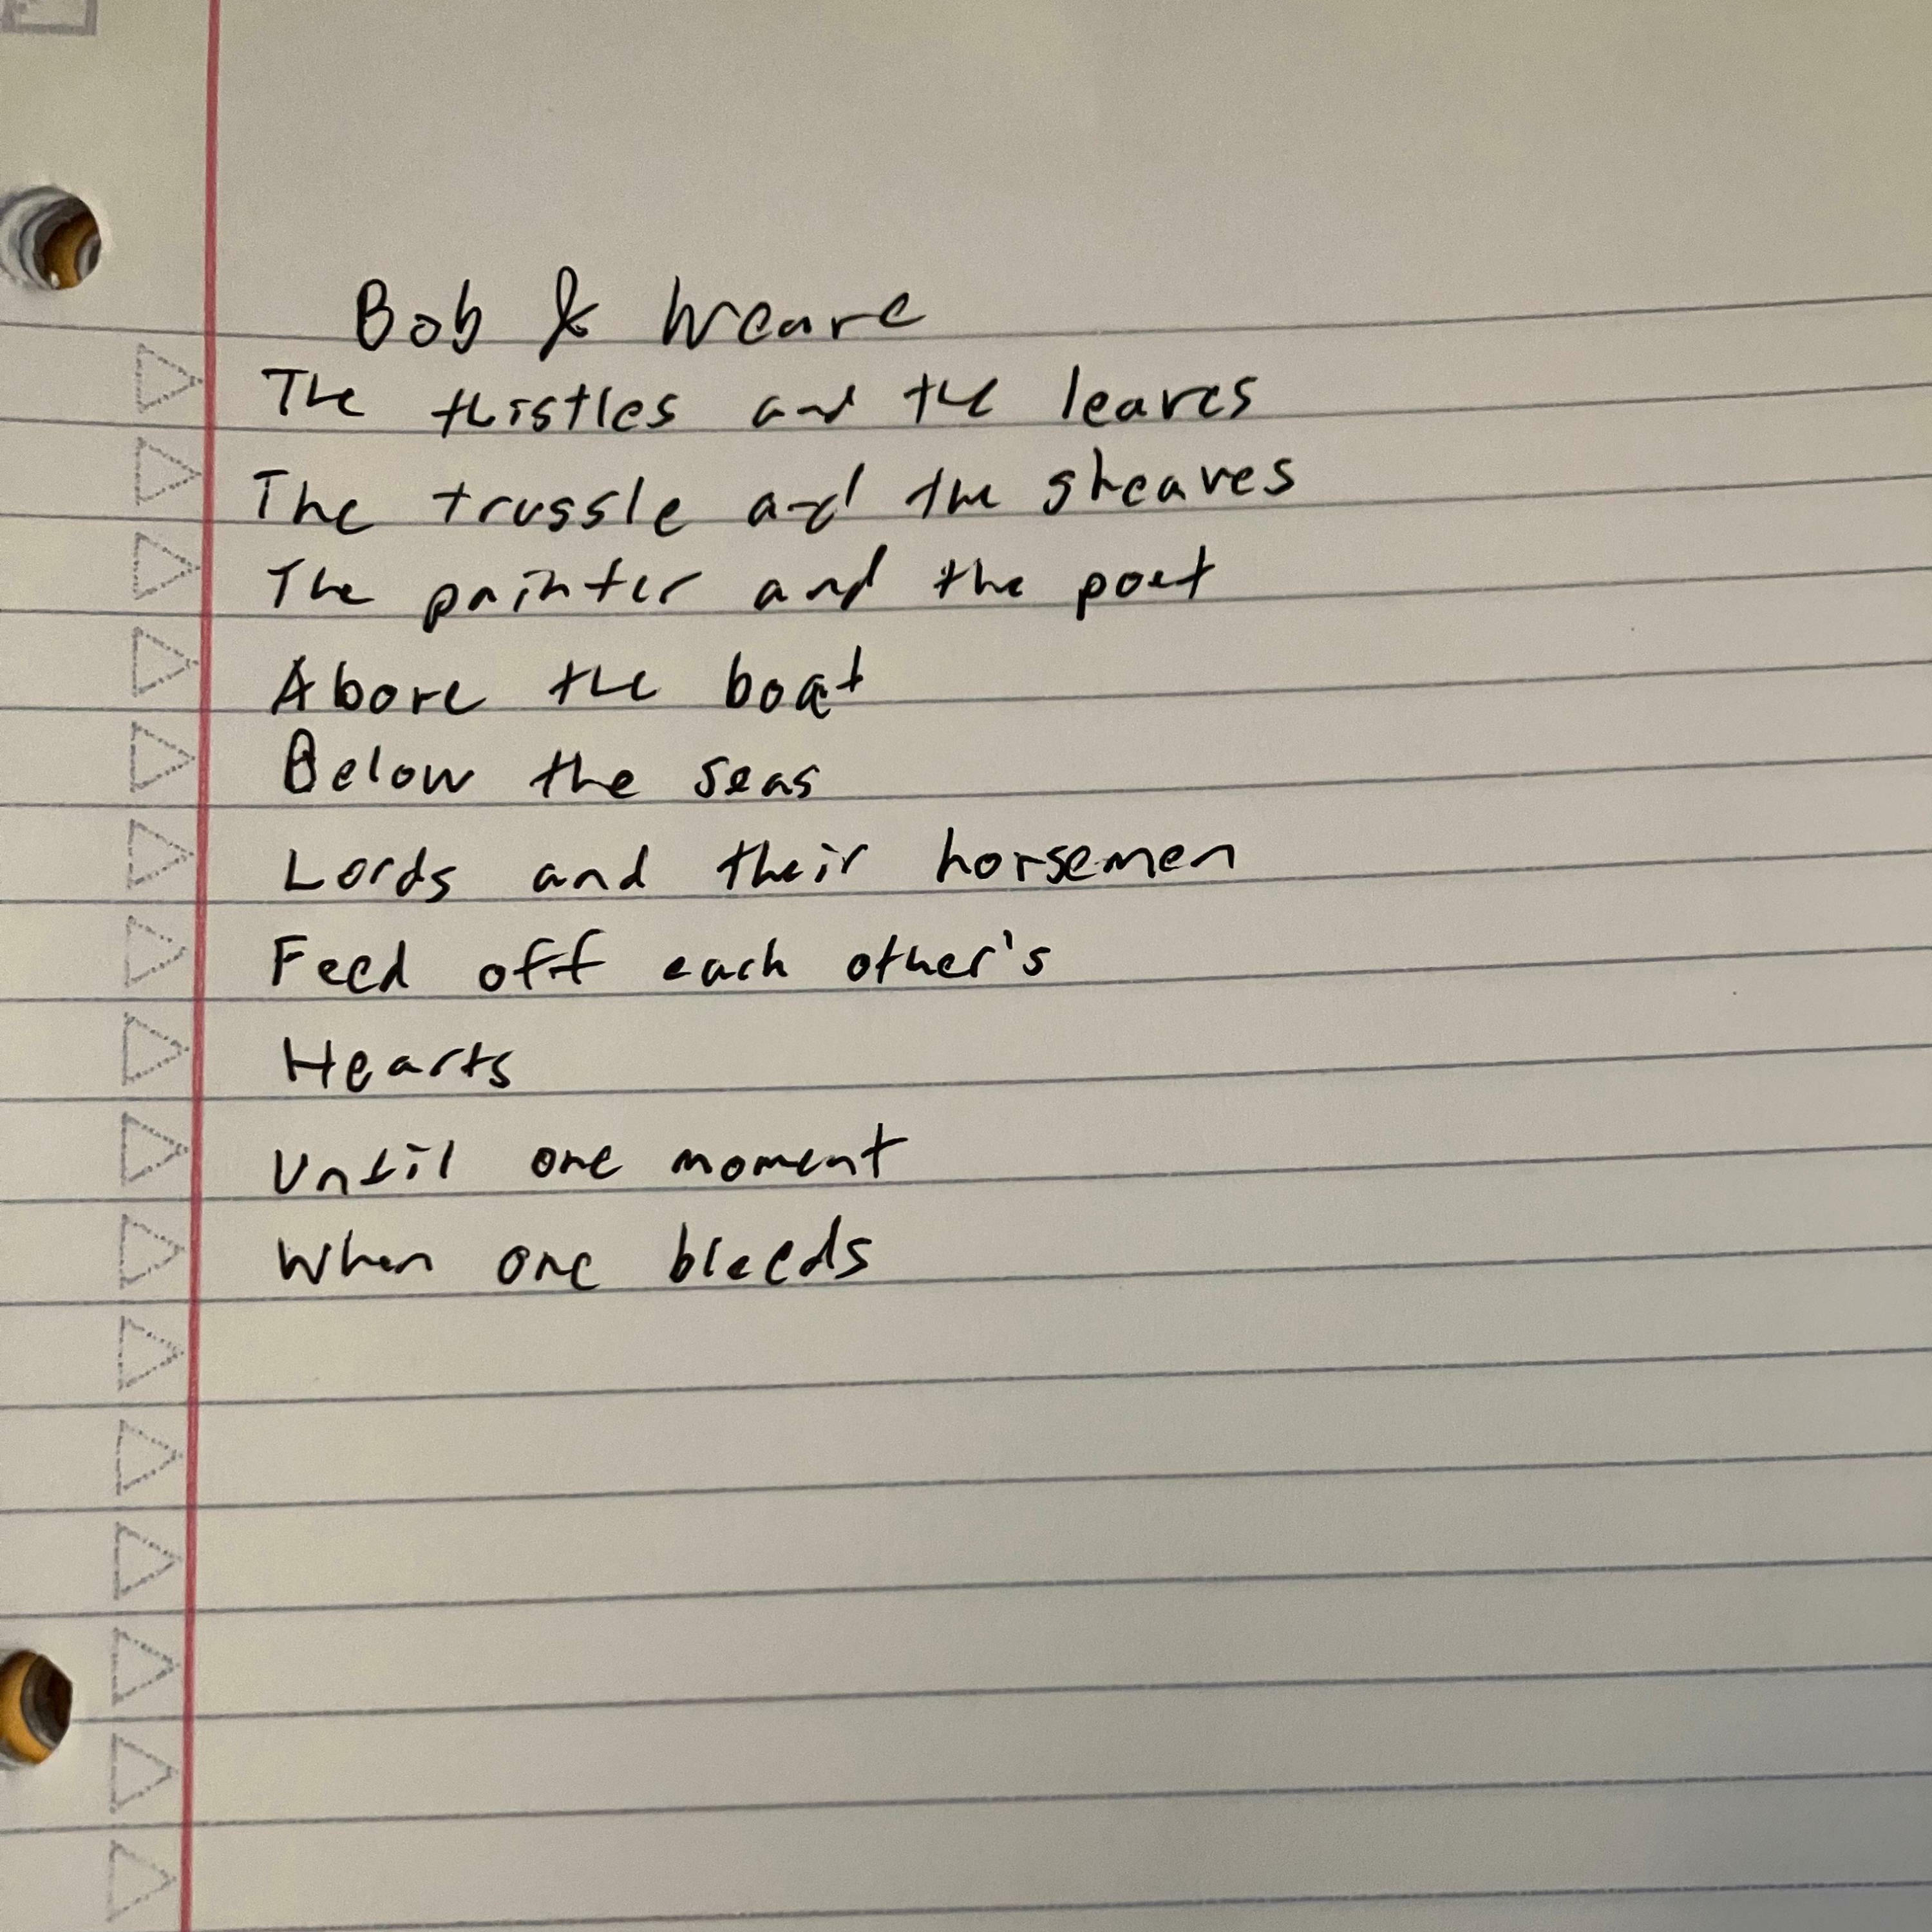 Bob & Weave
The thistles and the leaves
The trussle and the sheaves
The painter and the poet
Above the boat
Below the seas
Lords and their horsemen
Feed off each other's
Hearts
Until one moment
When one bleeds